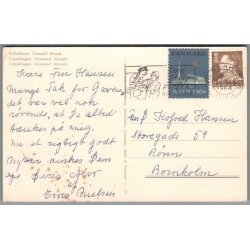 København Gammel Strand
Copenhagen »Gammel Strand«
Copenhague »Gammel Strand«
Kære Fru Hansen
Mange Tak for Gaven,
det var vel nok
rørende, at De altid
tænker på mig.
Et godt og lykkeligt
Nytår ønskes Dem
og Deres Mor
af
Nielsen
JULEN 1964
DANMARK
Kofoed Hansen
Storegade 59
Rønne
Bornholm